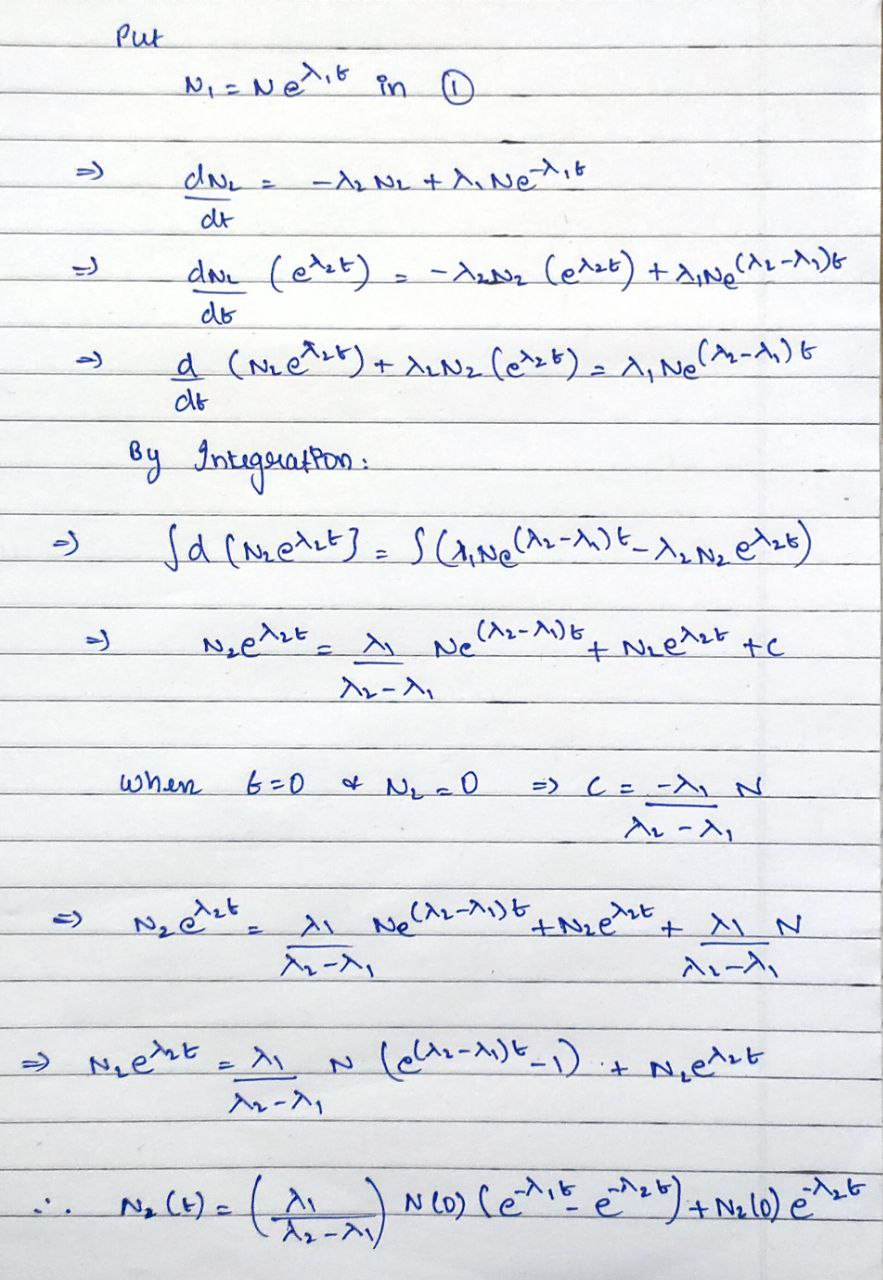 Put
N₁ = N e^λ₁t in ①
⇒ dN₂/dt = -λ₂ N₂ + λ₁ N e^-λ₁t
⇒ dN₂/dt (e^λ₂t) = -λ₂N₂ (e^λ₂t) + λ₁N e^(λ₂-λ₁)t
⇒ d/dt (N₂e^λ₂t) + λ₂N₂ (e^λ₂t) = λ₁ N e^(λ₂-λ₁)t
By Integration:
⇒ ∫d (N₂e^λ₂t} = ∫(λ₁N e^(λ₂-λ₁)t - λ₂N₂ e^λ₂t)
⇒ N₂e^λ₂t = λ₁/λ₂-λ₁ N e^(λ₂-λ₁)t + N₂e^λ₂t + C
When t=0 & N₂ = 0 ⇒ C = -λ₁/λ₂-λ₁ N
⇒ N₂e^λ₂t = λ₁/λ₂-λ₁ N e^(λ₂-λ₁)t + N₂e^λ₂t + λ₁/λ₂-λ₁ N
⇒ N₂e^λ₂t = λ₁/λ₂-λ₁ N (e^(λ₂-λ₁)t - 1) + N₂e^λ₂t
∴ N₂(t) = (λ₁/λ₂-λ₁) N(0) (e^-λ₁t - e^-λ₂t) + N₂(0) e^-λ₂t